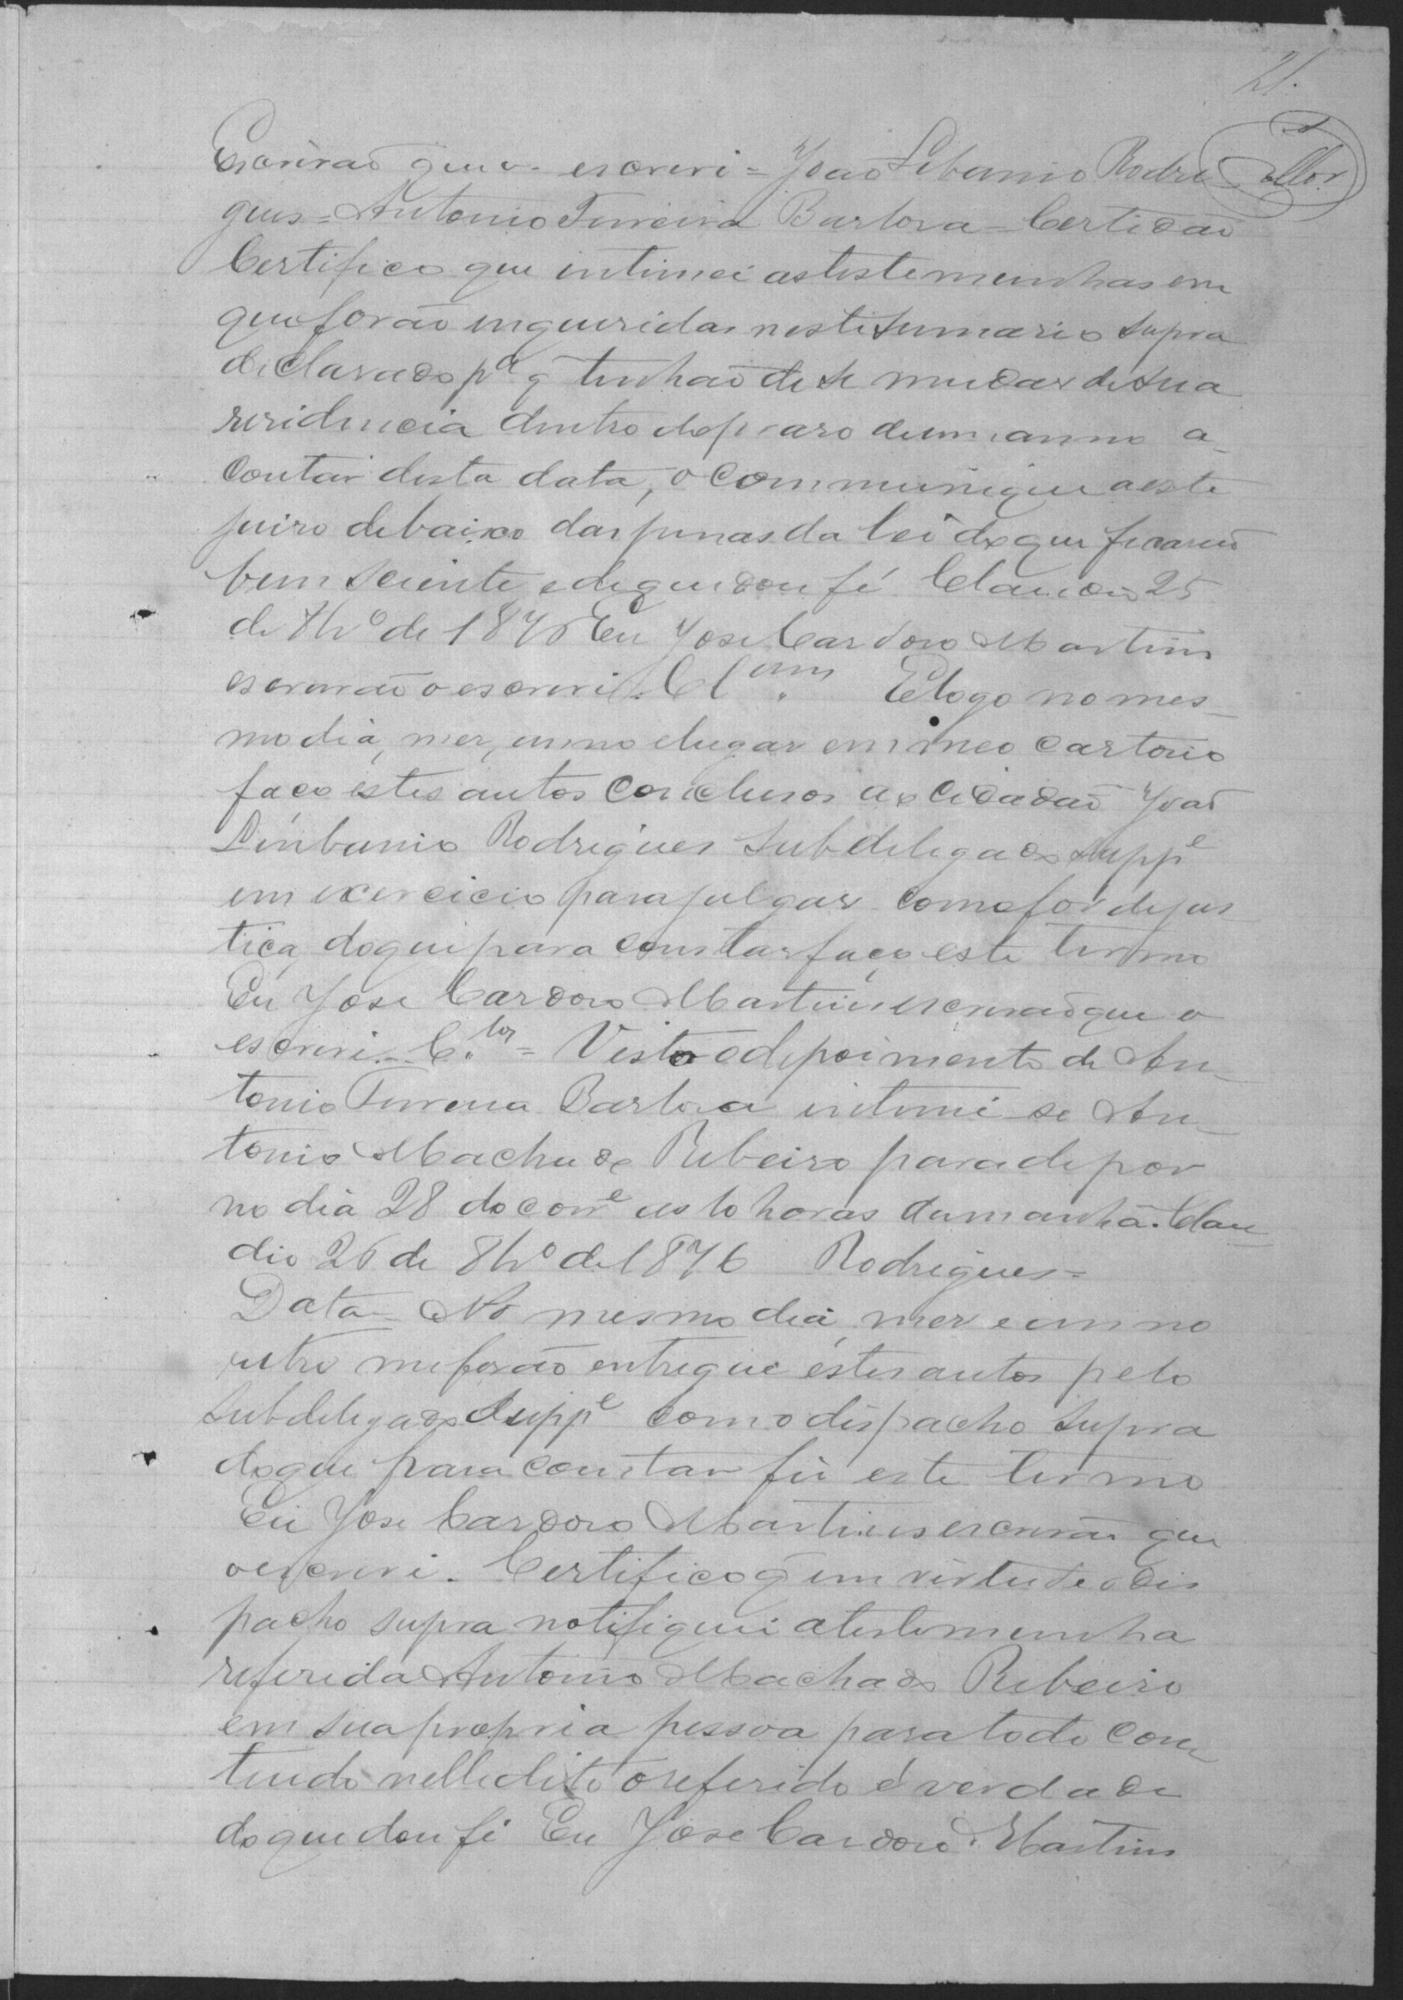 21.
Escrivaõ que o escrevi = Joaõ Libanio Rodri
gues = Antonio Ferreira Barbosa = Certidaõ
Certifico que intimei as testemunhas em
que foraõ inqueridas neste sumario supra
declarado pª q̃ tenhaõ de se mudar de sua
residencia dentro do praso de um anno a
contar desta data, o communique a este
juizo debaixo das penas da lei do que ficaraõ
bem sciente e de que dou fé Claudio 25
de 8bro de 1876 Eu Jose Cardoso Martins
escrivaõ o escrevi. Clsam. E logo no mes
mo dia, mez, anno e lugar em meo cartorio
faço estes autos conclusos ao cidadaõ Joaõ
Linbanio Rodrigues Subdelegado Suppe
em exercicio para julgar como for de jus
tiça, do que para constar faço este termo
Eu Jose Cardoso Martins escrivaõ que o
escrevi. = C.los = Visto o depoimento de An
tonio Ferreira Barbosa intime-se An
tonio Machado Ribeiro para depor
no dia 28 do corre as 10 horas da manhã. Clau
dio 26 de 8bro de 1876 Rodrigues =
Data = No mesmo dia, mez e anno
retro me foraõ entregue estes autos pelo
Subdelegado Suppe com o dispacho supra
do que para constar fiz este termo
Eu Jose Cardoso Martins escrivaõ que
o escrevi. Certifico q̃ em virtude o dis
pacho supra notifiquei a testemunha
referida Antonio Machado Ribeiro
em sua propria pessoa para todo con
teudo nelle dito o referido é verdade
do que dou fé Eu Jose Cardoso Martins